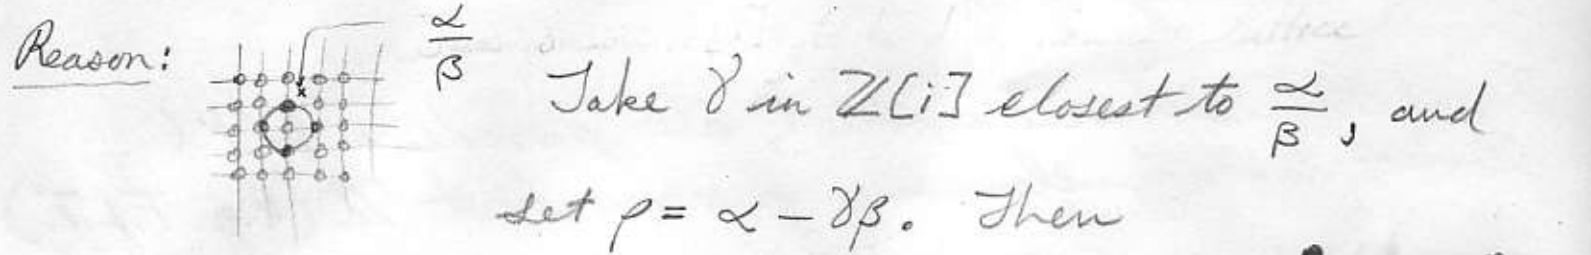 Reason: α/β Take γ in ℤ[i] closest to α/β, and
set ρ = α – γβ. Then